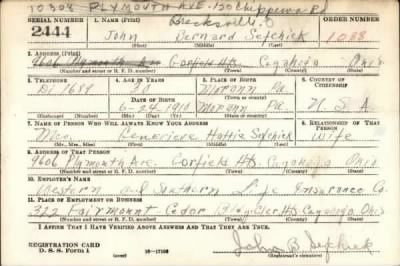 10308 PLYMOUTH AVE. 150 Chippewa Rd
Brecksville, O
SERIAL NUMBER 1. NAME (Print) ORDER NUMBER
2444 John Bernard Sefchick 1088
(First) (Middle) (Last)
2. ADDRESS (Print)
9606 Plymouth Ave Garfield Hts. Cuyahoga Ohio
(Number and street or R. F. D. number) (Town) (County) (State)
3. TELEPHONE 4. AGE IN YEARS 5. PLACE OF BIRTH 6. COUNTRY OF CITIZENSHIP
Di 1689 30 Morann Pa.
DATE OF BIRTH (Town or county)
6-24-1910 Morann Pa. U. S. A.
(Exchange) (Number) (Mo.) (Day) (Yr.) (State or country)
7. NAME OF PERSON WHO WILL ALWAYS KNOW YOUR ADDRESS 8. RELATIONSHIP OF THAT PERSON
Mrs. Genevieve Hattie Sefchick Wife
(Mr., Mrs., Miss) (First) (Middle) (Last)
9. ADDRESS OF THAT PERSON
9606 Plymouth Ave. Garfield Hts. Cuyahoga Ohio
(Number and street or R. F. D. number) (Town) (County) (State)
10. EMPLOYER'S NAME
Western and Southern Life Insurance Co.
11. PLACE OF EMPLOYMENT OR BUSINESS
322 Fairmount Cedar Bldg Hts. Cuyahoga Ohio
(Number and street or R. F. D. number) (Town) (County) (State)
I AFFIRM THAT I HAVE VERIFIED ABOVE ANSWERS AND THAT THEY ARE TRUE.
REGISTRATION CARD
D. S. S. Form 1 John B Sefchick